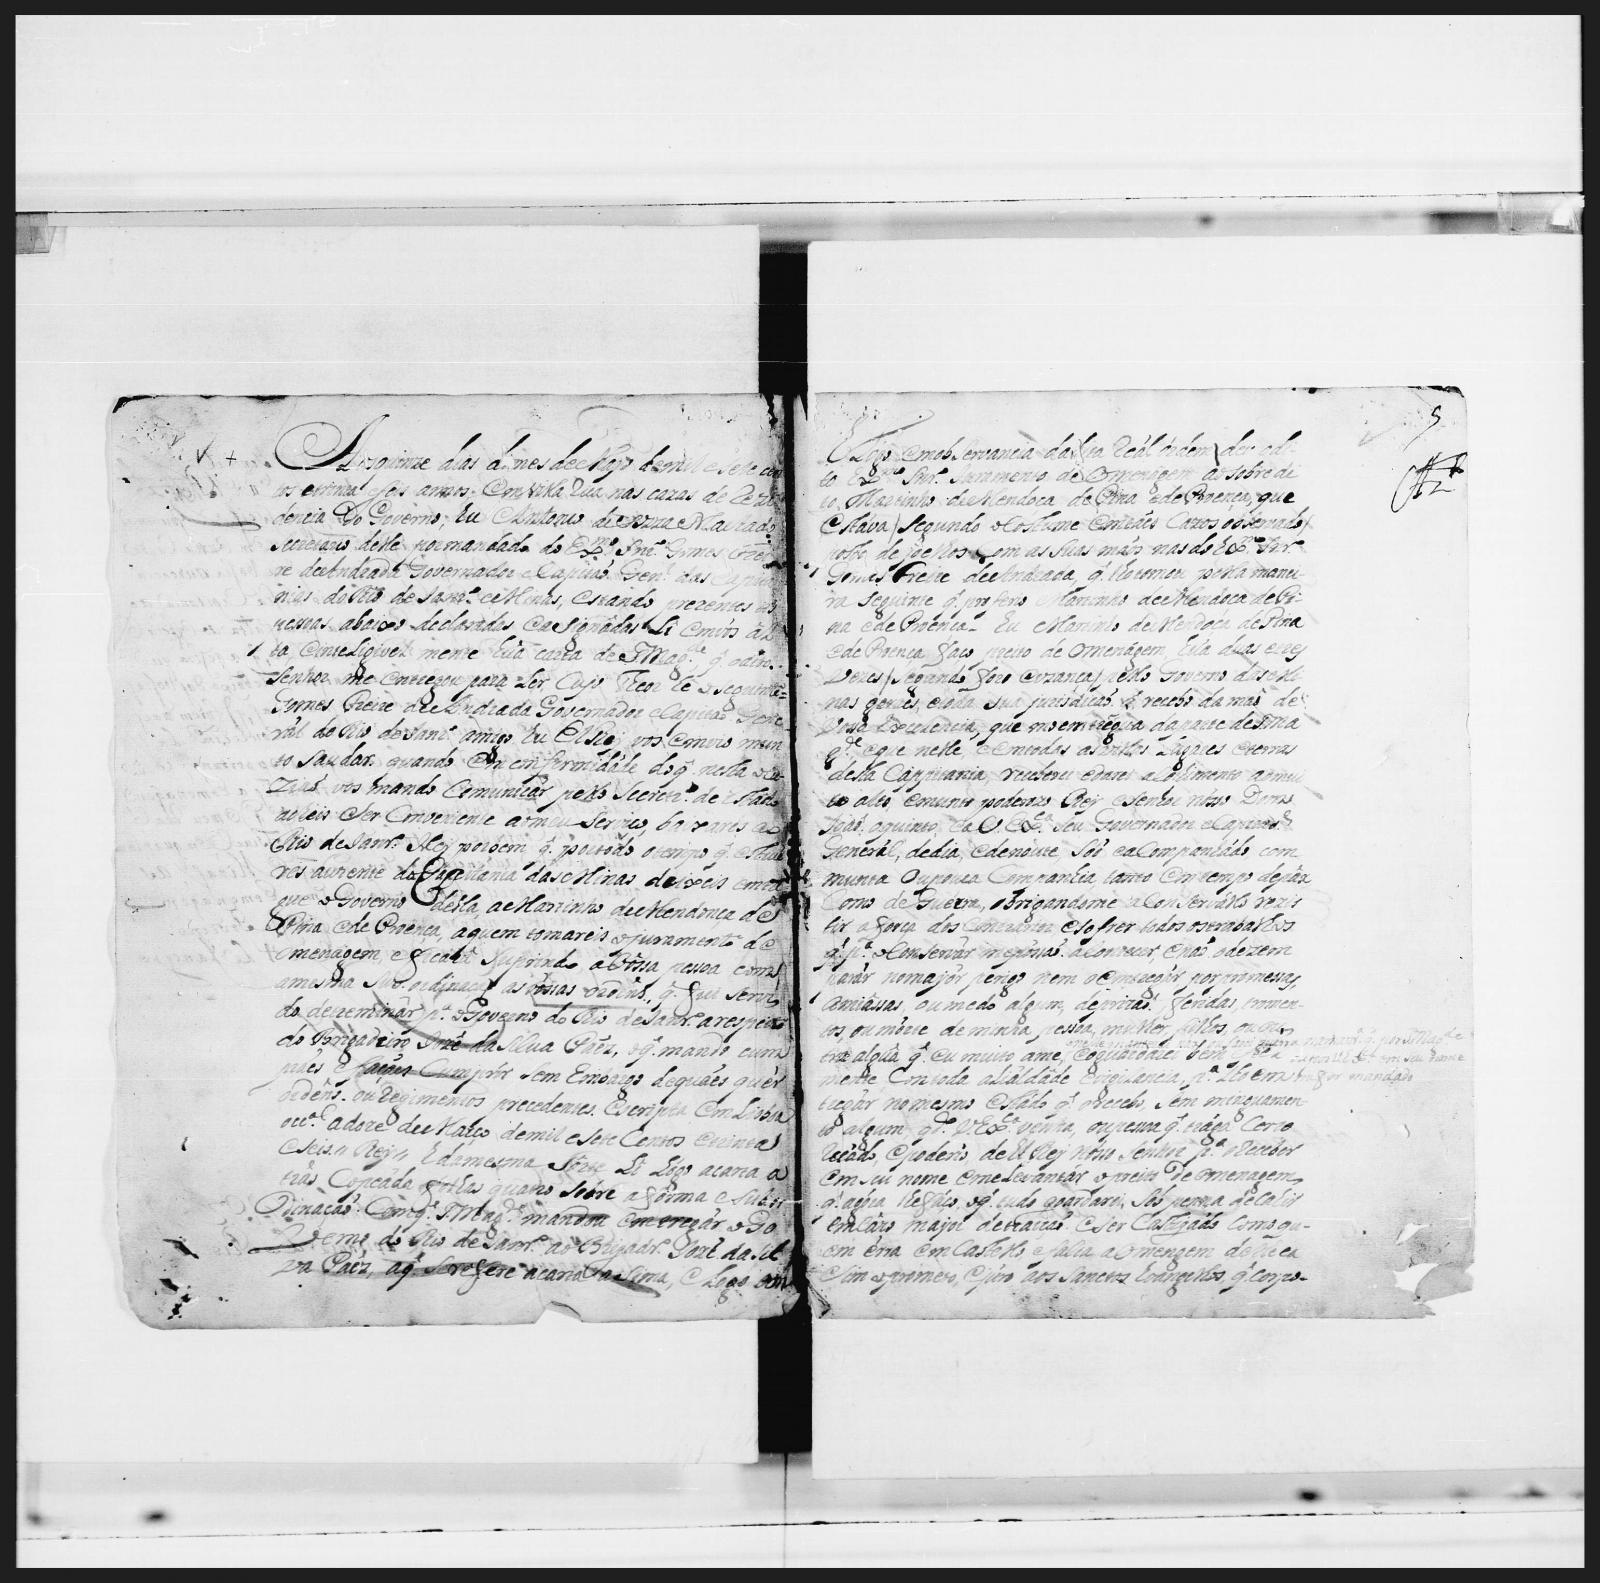 Aos quinze dias do mes de Mayo de mil e sete cen
tos etrinta e seis annos. Em Villa Rica nas cazas de Rezi
dencia do Governo; Eu Antonio de Souza Machado
Secretario delle por mandado do Exmo. Snr. Gomes Frei
re de Andrada Governador e Capitaõ Genal. das Capita
nias do Rio de Janro. e Minas, estando prezentes as
pessoas abaixo declaradas e asignadas Li em vós al
ta e inteligivel mente hũa carta de S Magde. q. o dito
Senhor me entregou para Ler, Cujo Theor hé o seguinte=
Gomes Freire de Andrada Governador e Capitaõ Gene
rál do Rio de Janro. amigo Eu ElRey vos envio muy
to saudar. quando em conformidade do q. nesta oca
ziaõ vos mando Comunicar pello Secretro. de estado
achéis Ser Conveniente a o meu Serviço, baixares ao
Rio de Janro. Hey por bem q. por todo o tempo q. estive
res auzente da Cappitania das Minas deixeis emcar
gue o Governo della, a Martinho de Mendonca de
Pina e de Proença, aquem tomareis o juramento de
omenagem, e ficará Suprindo a Vossa pessoa com
a mesma Subordinaçaõ as vossas ordens, q. fui Servi
do determinar pa. o Governo do Rio de Janro. a respeito
do Brigadeiro Jozé da Silva Paez, o q. mando cum
praes e façaes Cumprir sem Embargo de quaes quer
ordens, ou Regimentos precedentes. Escripta Em Lisboa
occal. a doze de Março de mil e Sete Centos e trinta
e Seis. Rey. E da mesma Sorte Li Logo a carta a
tras Copeada a folhas quatro Sobre a forma e Subor
dinaçaõ Com q. S Magde. mandou emtregar o Go
verno do Rio de Janro. ao Brigadro. Jozé da Sil
va Paez, aq. Se refere a carta Sa Sima, e Logo em
5
Logo em observancia da Sua Reál órdem deu o di-
to Exmo. Snr. Juramento de Omenágem ao Sobre di
to Martinho de Mendoca de Pina e de Proença, que
estáva / Segundo o Costume em táes Cazos observado /
posto de joelhos, Com as Suas maõs nas do Exmo. Snr.
Gomes Freire de Andrada, q. lho tomou pella manei-
ra Seguinte q. proferio Martinho de Mendoca de Pi-
na e de Proença. Eu Martinho de Mendoca de Pina
e de Proença faço preito de Omenágem, hũa duas e tres
Vezes / Segundo foro e uzança / pello Governo das Mi-
nas geraes, e toda Sua jurisdicaõ q. recebo da maõ de
Vossa Excellencia, que mo emtrega da parte de Sua
Mgde. e que nelle e em todas as Villas Lugares e terras
desta Cappitania, receberei e darei acolhimento ao mui
to alto, e muito poderozo Rey e Senhor nosso Dom
Joaõ o quinto, e a V. Exa. Seu Governador e Capitaõ
General, de dia, e de noute, Só e a Companhado com
munta ou pouca Companhia, tanto em tempo de páz
Como de Guerra, obrigandome a Conservallo rezis
tir a força dos Contrarios e Sofrer todos os trabalhos
q. pa. o Conservar me possaõ a Contecer, e naõ o dezem
parár no mayór perigo nem o emtregár por promessas
amiássas, ou medo algum, de prizaõ feridas, tromen-
tos, ou mórte de minha pessoa, mulher, filhos, ou ou
tra algũa q. eu muito ame, e o guardarei bem
mente Com toda a Lialdáde e vigilancia, pa. lho em
tregár no mesmo estádo q. o recebo, Sem minguamen
to algum, qdo. V Exa. vénha, ou pessoa q. traga Certo
Recádo, e poderio, de El Rey Nosso Senhor pa. o Receber
em Seu nome e me Levantár o preito de omenágem
q. aqui lhe faço, o q. tudo goardarei, Sob penna de Cahir
em Cázo mayor de traiçaõ e Ser Castigado Como qu-
em érra em Castello e falta a omenágem delle e a
Sim o prometo, e juro aos Sanctos Evangelhos, q. corpo-